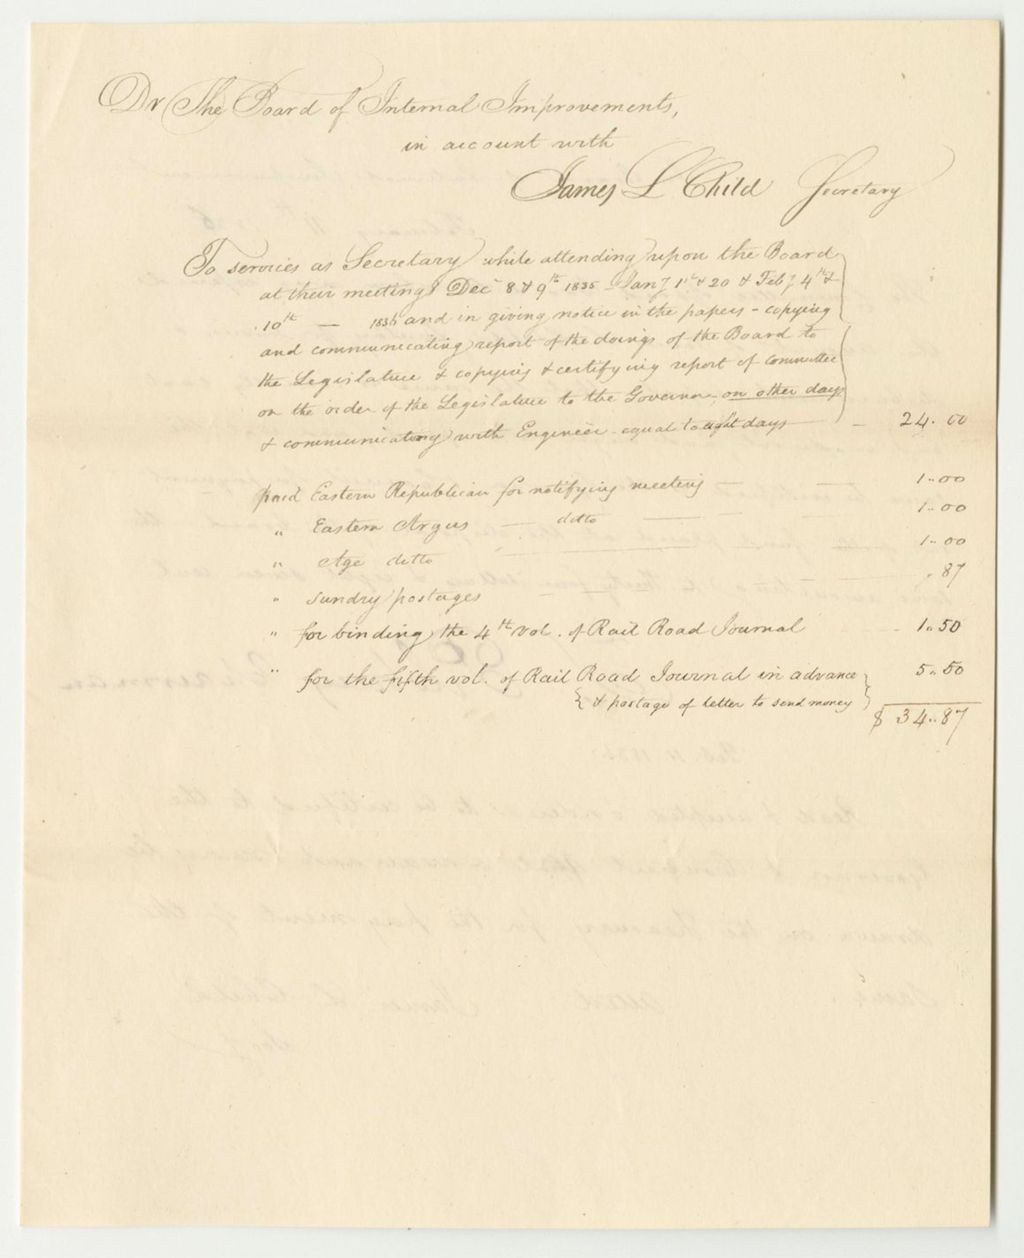 Dr The Board of Internal Improvements,
in account with
James L Child Secretary
To services as Secretary while attending upon the Board
at their meetings Dec 8 & 9th 1835 Jany 1st & 20 & Feby 4th &
10th — 1836 and in giving notice in the papers - copying
and communicating report of the doings of the Board to
the Legislature & copying & certifying report of committee
on the order of the Legislature to the Governor, on other days
& communicating with Engineer - equal to eight days — 24.00
paid Eastern Republican for notifying meeting — — 1..00
" Eastern Argus — ditto — — 1..00
" Age ditto 1..00
" Sundry postages — .87
" for binding the 4th vol. of Rail Road Journal - 1..50
" for the fifth vol. of Rail Road Journal in advance 5..50
& postage of letter to send money
$ 34..87